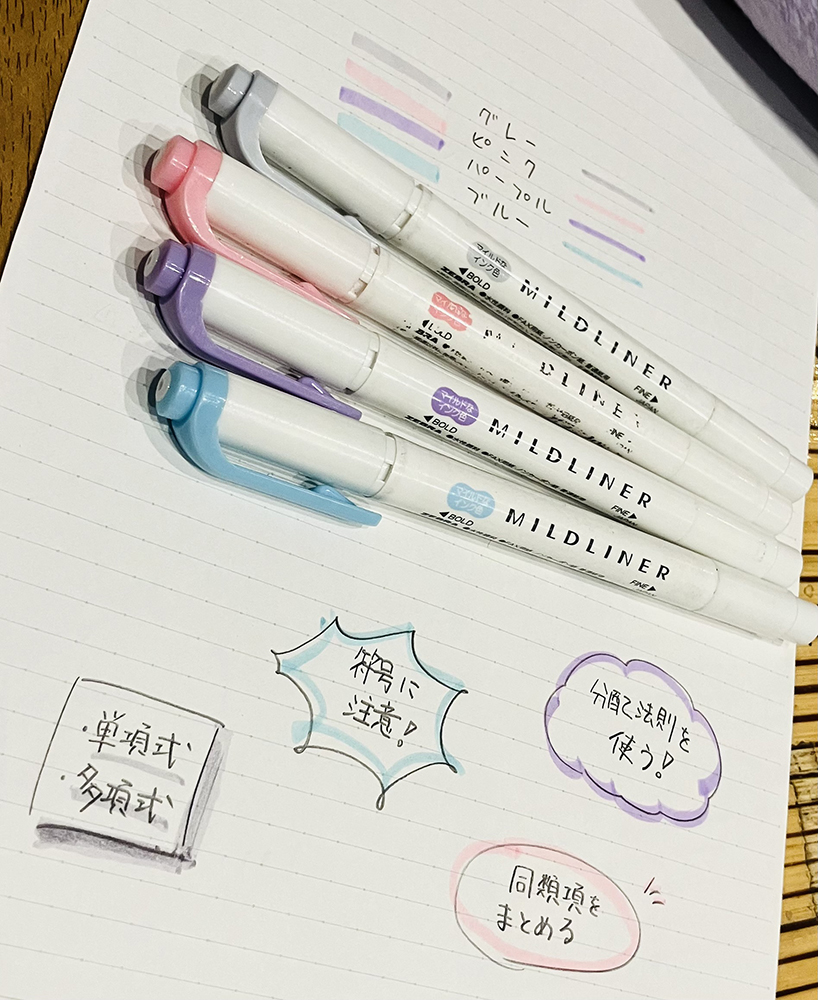 グレー
ピンク
パープル
ブルー
マイルドな
インク色
◀BOLD
MILDLINER
FINE▶
ZEBRA
マイルドな
マイルドな
インク色
◀BOLD
MILDLINER
FINE▶
ZEBRA
マイルドな
インク色
◀BOLD
MILDLINER
FINE▶
符号に
注意!
分配法則を
使う!
・単項式
・多項式
同類項を
まとめる